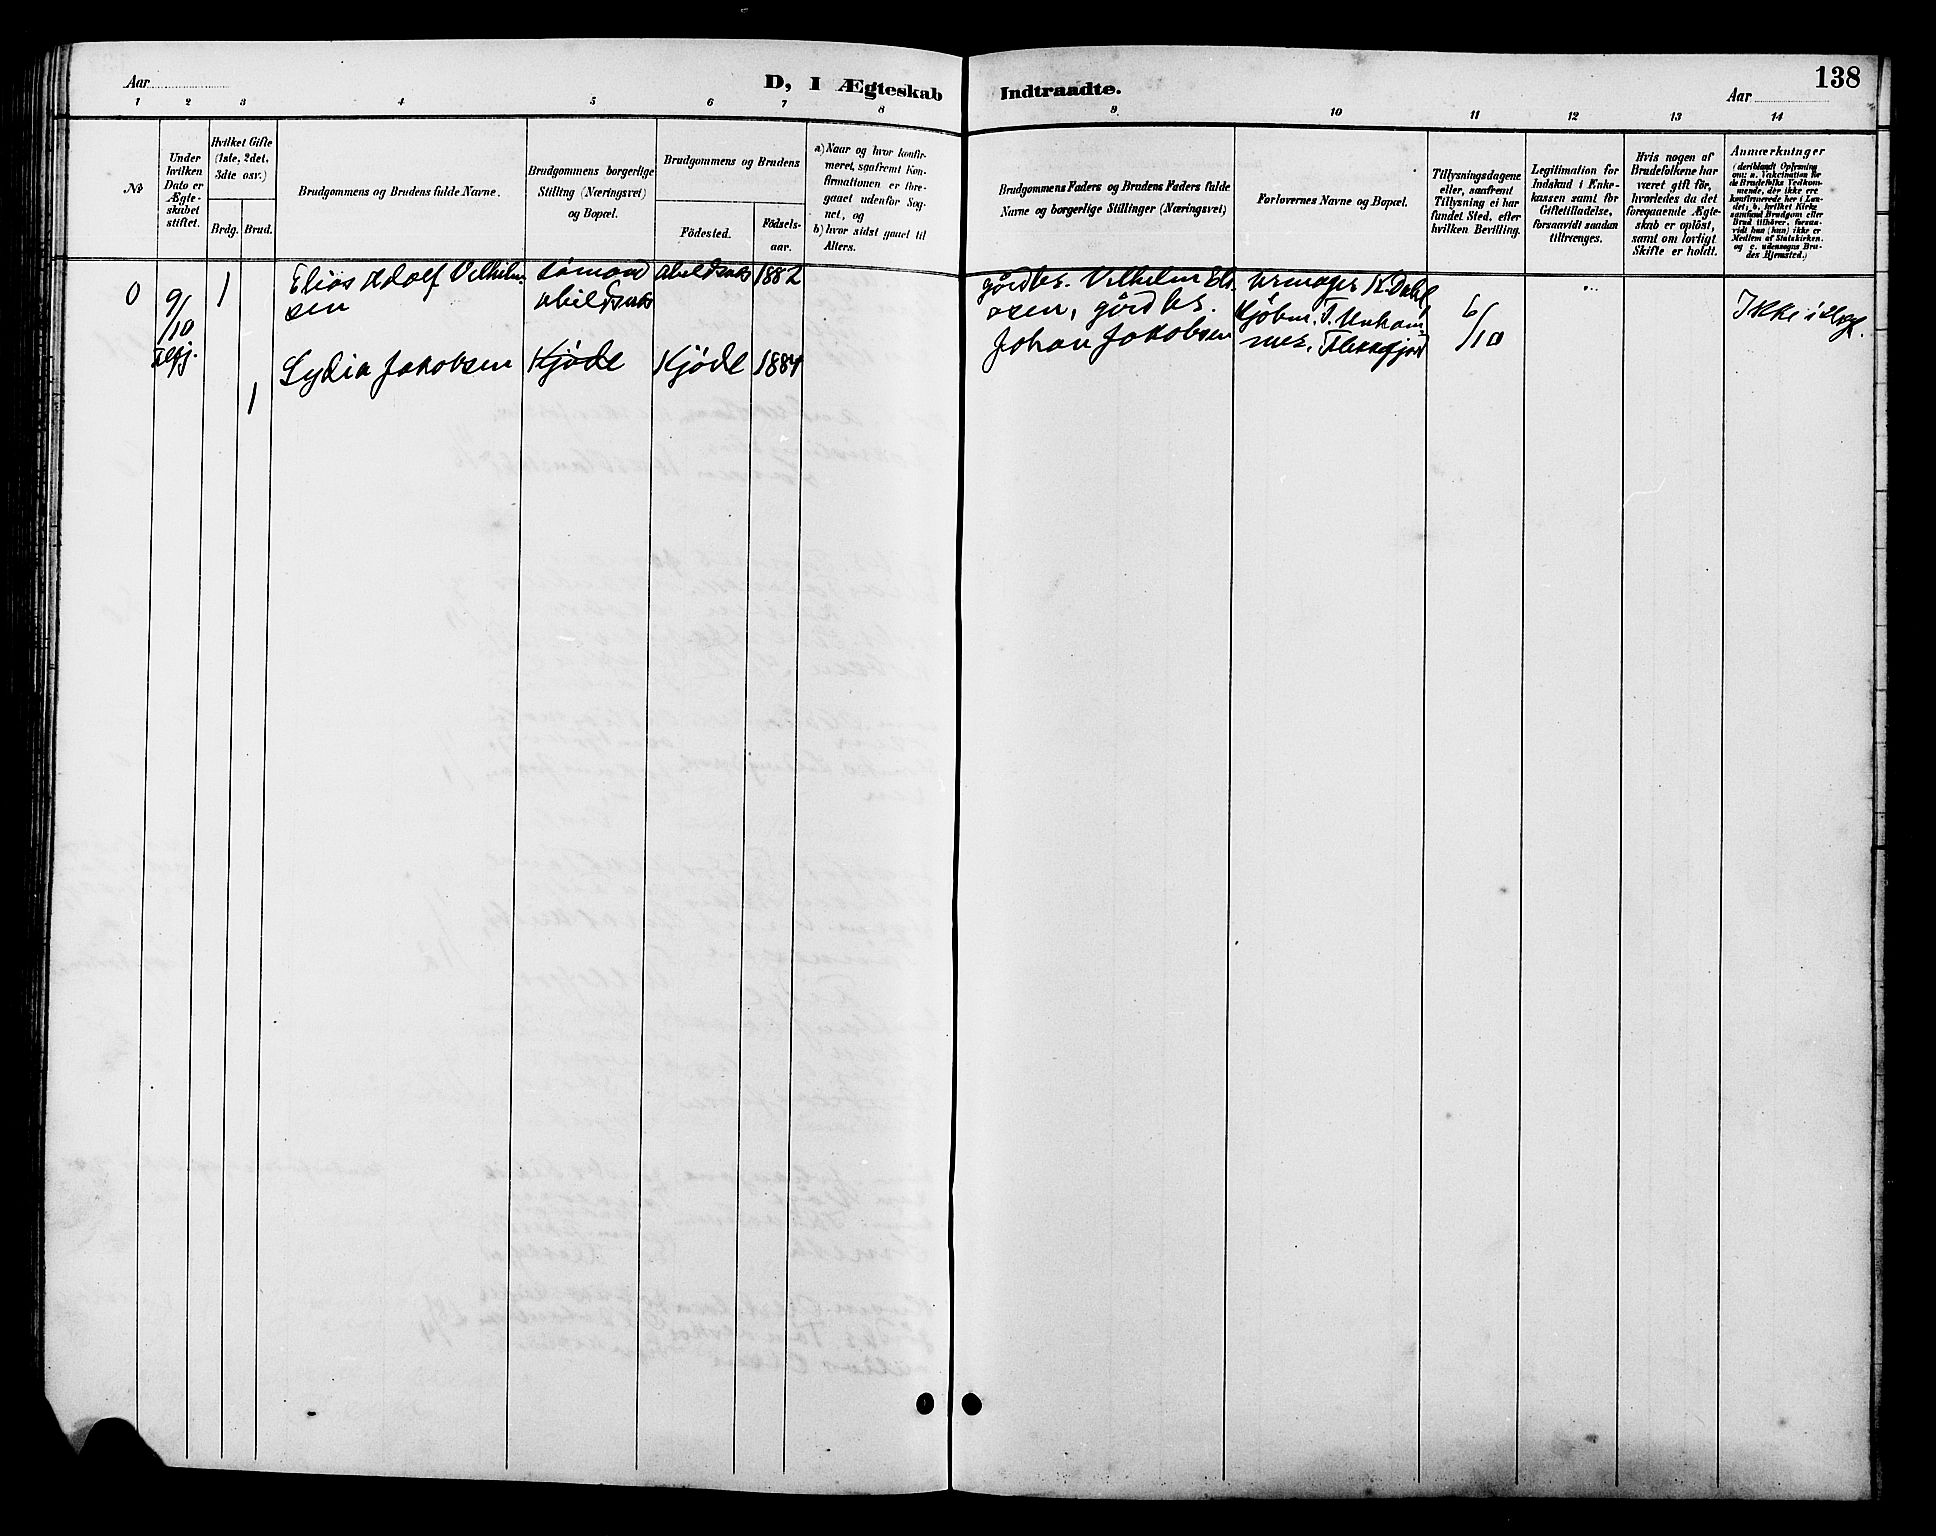 Aar
D, I Ægteskab
Indtraadte.
Aar
138
1 2 3 4 5 6 7 8 9 10 11 12 13 14
No
Under hvilken Dato er Ægteskabet stiftet.
Hvilket Gifte (1ste, 2det, 3die osv.)
Brdg. Brud.
Brudgommens og Brudens fulde Navne.
Brudgommens borgerlige
Stilling (Næringsvei)
og Bopæl.
Brudgommens og Brudens
Födested.
Födselsaar.
a) Naar og hvor konfirmeret, saafremt Konfirmationen er foregaaet udenfor Sognet, og
b) hvor sidst gaaet til Alters.
Brudgommens Faders og Brudens Faders fulde
Navne og borgerlige Stillinger (Næringsvei)
Forlovernes Navne og Bopæl.
Tillysningsdagene
eller, saafremt
Tillysning ei har
fundet Sted, efter
hvilken Bevilling.
Legitimation for
Indskud i Enkekassen samt for
Giftetilladelse,
forsaavidt saadan
tiltrænges.
Hvis nogen af
Brudefolkene har
været gift för,
hvorledes da det
foregaaende Ægteskab er oplöst,
samt om lovligt
Skifte er holdt.
Anmærkninger
(deriblandt Oplysning om: a. Vakcination for de Brudefolks Vedkommende, der ikke ere konfirmerede her i Landet, b. hvilket Kirkesamfund Brudgom eller Brud tilhörer, forsaavidt han (hun) ikke er Medlem af Statskirken, og c. udensogns Brudes Hjemsted.)
0
9/10
1
Elias Adolf Vilhelmsen
Sömand
Abildsnes
Abildsnes
1882
gårdbr. Vilhelm
gårdbr.
Johan Jakobsen
K. Dahl
Kjöbm.
Flekkefjord
6/10
Ikke i slegt.
1
Lydia Jakobsen
Kjöde
Kjöde
1884